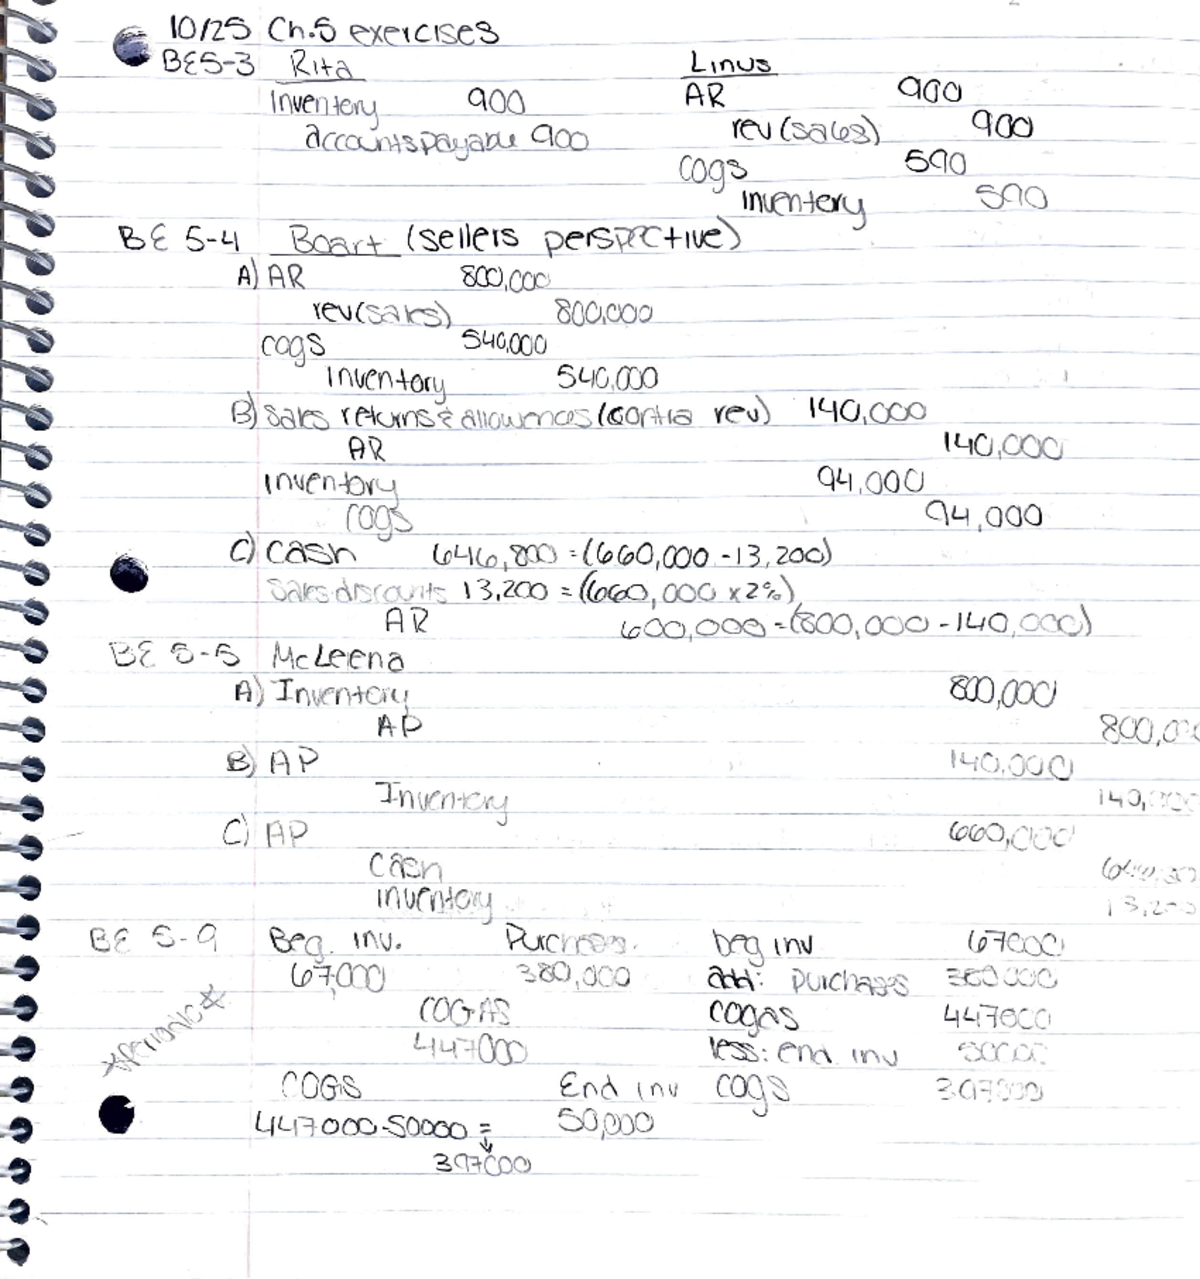 10/25 Ch.5 exercises
BE5-3 Rita Linus
Inventory 900 AR 900
accounts payable 900 rev (sales) 900
cogs 590
inventory 590
BE 5-4 Boart (sellers perspective)
A) AR 800,000
rev (sales) 800,000
cogs 540,000
Inventory 540,000
B) Sales returns & allowences (contra rev) 140,000
AR 140,000
Inventory 94,000
cogs 94,000
C) Cash 646,800 = (660,000 - 13,200)
Sales discounts 13,200 = (660,000 x 2%)
AR 600,000 = (800,000 - 140,000)
BE 5-5 McLeena
A) Inventory 800,000
AP 800,00
B) AP 140,000
Inventory 140,000
C) AP 660,000
Cash
inventory 13,200
BE 5-9 Beg. inv. Purchases. beg inv 67000
67,000 380,000 add: purchases 380000
COGAS cogas 447000
*Periodic* 447000 less: end inv 50000
COGS End inv cogs 397000
447000-50000 = 50,000
397000